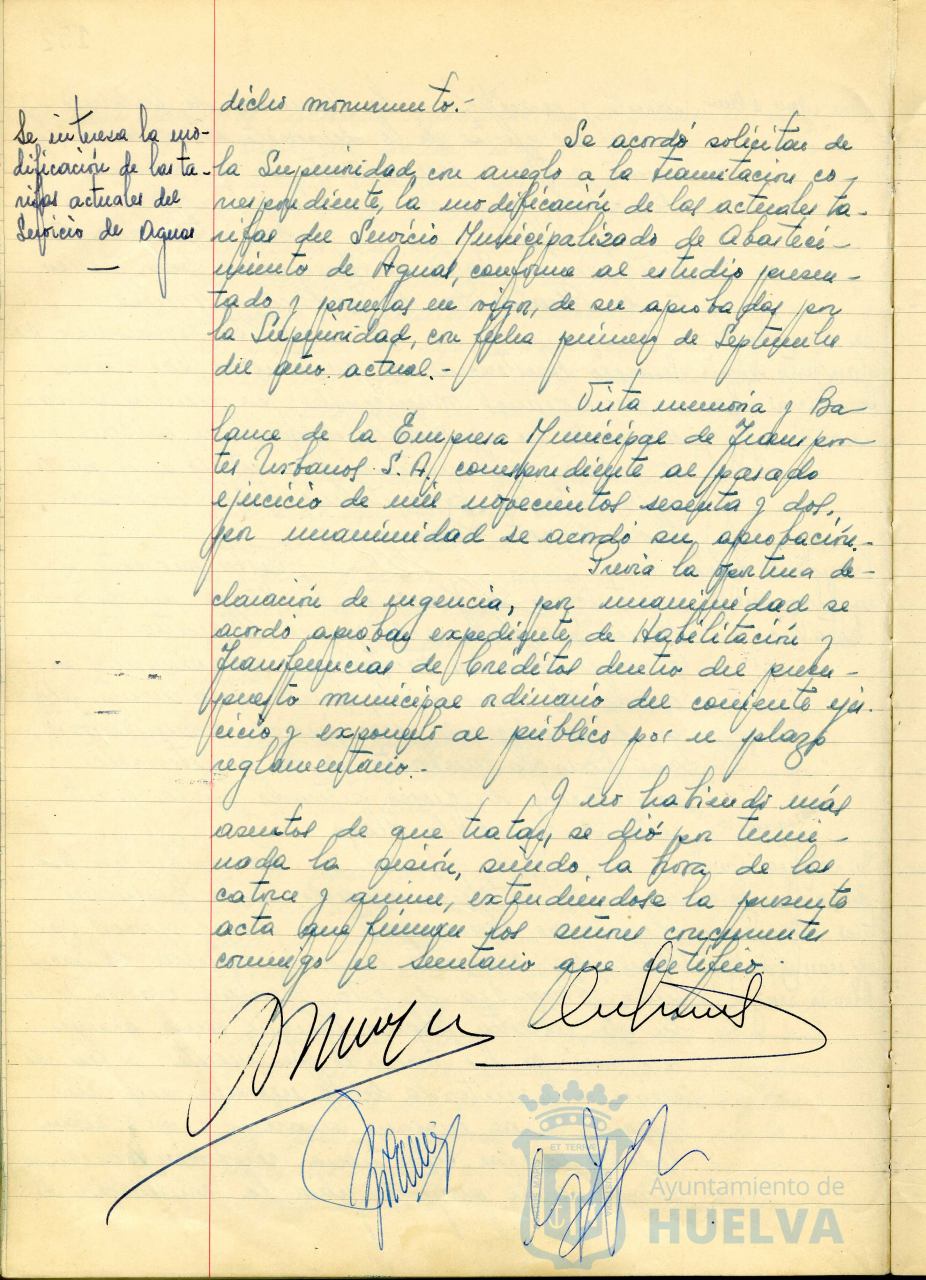 dicho monumento.-
Se interesa la mo-
dificación de las ta-
rifas actuales del
Servicio de Aguas
Se acordó solicitar de
la Superioridad, con arreglo a la tramitación co-
rrespondiente, la modificación de las actuales ta-
rifas del Servicio Municipalizado de Abasteci-
miento de Aguas, conforme al estudio presen-
tado y ponerlas en vigor, de ser aprobadas por
la Superioridad, con fecha primero de Septiembre
del año actual.-
Vista memoria y Ba-
lance de la Empresa Municipal de Transpor-
tes Urbanos S.A. correspondiente al pasado
ejercicio de mil novecientos sesenta y dos,
por unanimidad se acordó su aprobación.-
Previa la oportuna de-
claración de urgencia, por unanimidad se
acordó aprobar expediente de Habilitación y
Transferencias de Créditos dentro del presu-
puesto municipal ordinario del corriente ejer-
cicio, y exponerlo al público por el plazo
reglamentario.-
Y no habiendo más
asuntos de que tratar, se dió por termi-
nada la sesión, siendo la hora de las
catorce y quince, extendiéndose la presente
acta que firman los señores concurrentes
conmigo el Secretario que certifico.
Ayuntamiento de
HUELVA